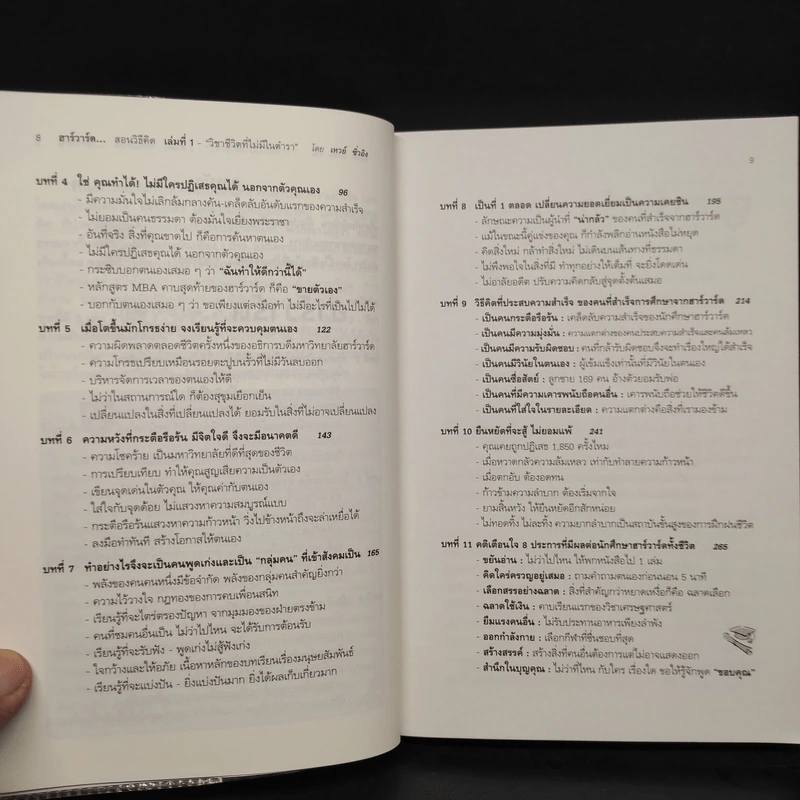 8 ฮาร์วาร์ด... สอนวิธีคิด เล่มที่ 1 - "วิชาชีวิตที่ไม่มีในตำรา" โดย เหวย์ ซิ่วอิง
บทที่ 4 ใช่ คุณทำได้! ไม่มีใครปฏิเสธคุณได้ นอกจากตัวคุณเอง 96
- มีความมั่นใจไม่เลิกล้มกลางคัน-เคล็ดลับอันดับแรกของความสำเร็จ
- ไม่ยอมเป็นคนธรรมดา ต้องมั่นใจเยี่ยงพระราชา
- อันที่จริง สิ่งที่คุณขาดไป ก็คือการค้นหาตนเอง
- ไม่มีใครปฏิเสธคุณได้ นอกจากตัวคุณเอง
- กระซิบบอกตนเองเสมอ ๆ ว่า "ฉันทำให้ดีกว่านี้ได้"
- หลักสูตร MBA คาบสุดท้ายของฮาร์วาร์ด ก็คือ "ขายตัวเอง"
- บอกกับตนเองเสมอ ๆ ว่า ขอเพียงแต่ลงมือทำ ไม่มีอะไรที่เป็นไปไม่ได้
บทที่ 5 เมื่อโตขึ้นมักโกรธง่าย จงเรียนรู้ที่จะควบคุมตนเอง 122
- ความผิดพลาดตลอดชีวิตครั้งหนึ่งของอธิการบดีมหาวิทยาลัยฮาร์วาร์ด
- ความโกรธเปรียบเหมือนรอยตะปูบนรั้วที่ไม่มีวันลบออก
- บริหารจัดการเวลาของตนเองให้ดี
- ไม่ว่าในสถานการณ์ใด ก็ต้องสุขุมเยือกเย็น
- เปลี่ยนแปลงในสิ่งที่เปลี่ยนแปลงได้ ยอมรับในสิ่งที่ไม่อาจเปลี่ยนแปลง
บทที่ 6 ความหวังที่กระตือรือร้น มีจิตใจดี จึงจะมีอนาคตดี 143
- ความโชคร้าย เป็นมหาวิทยาลัยที่ดีที่สุดของชีวิต
- การเปรียบเทียบ ทำให้คุณสูญเสียความเป็นตัวเอง
- เขียนจุดเด่นในตัวคุณ ให้คุณค่ากับตนเอง
- ใส่ใจกับจุดด้อย ไม่แสวงหาความสมบูรณ์แบบ
- กระตือรือร้นแสวงหาความก้าวหน้า วิ่งไปข้างหน้าถึงจะล่าเหยื่อได้
- ลงมือทำทันที สร้างโอกาสให้ตนเอง
บทที่ 7 ทำอย่างไรจึงจะเป็นคนพูดเก่งและเป็น "กลุ่มคน" ที่เข้าสังคมเป็น 165
- พลังของคนคนหนึ่งมีข้อจำกัด พลังของกลุ่มคนสำคัญยิ่งกว่า
- ความไว้วางใจ กฎทองของการคบเพื่อนสนิท
- เรียนรู้ที่จะไตร่ตรองปัญหา จากมุมมองของฝ่ายตรงข้าม
- คนที่ชมคนอื่นเป็น ไม่ว่าไปไหน จะได้รับการต้อนรับ
- เรียนรู้ที่จะรับฟัง - พูดเก่งไม่สู้ฟังเก่ง
- ใจกว้างและให้อภัย เนื้อหาหลักของบทเรียนเรื่องมนุษยสัมพันธ์
- เรียนรู้ที่จะแบ่งปัน - ยิ่งแบ่งปันมาก ยิ่งได้ผลเก็บเกี่ยวมาก
9
บทที่ 8 เป็นที่ 1 ตลอด เปลี่ยนความยอดเยี่ยมเป็นความเคยชิน 195
- ลักษณะความเป็นผู้นำที่ "น่ากลัว" ของคนที่สำเร็จจากฮาร์วาร์ด
- แม้ในขณะนี้คู่แข่งของคุณ ก็กำลังพลิกอ่านหนังสือไม่หยุด
- คิดสิ่งใหม่ กล้าทำสิ่งใหม่ ไม่เดินบนเส้นทางที่ธรรมดา
- ไม่พึงพอใจในสิ่งที่มี ทำทุกอย่างให้เต็มที่ จะยิ่งโดดเด่น
- ไม่อาลัยอดีต ปรับความคิดกลับสู่จุดตั้งต้นเสมอ
บทที่ 9 วิธีคิดที่ประสบความสำเร็จ ของคนที่สำเร็จการศึกษาจากฮาร์วาร์ด 214
- เป็นคนกระตือรือร้น : เคล็ดลับความสำเร็จของนักศึกษาฮาร์วาร์ด
- เป็นคนมีความมุ่งมั่น : ความแตกต่างของคนประสบความสำเร็จและคนล้มเหลว
- เป็นคนมีความรับผิดชอบ : คนที่กล้ารับผิดชอบจึงจะทำเรื่องใหญ่ได้สำเร็จ
- เป็นคนมีวินัยในตนเอง : ผู้เข้มแข็งเท่านั้นที่มีวินัยในตนเอง
- เป็นคนซื่อสัตย์ : ลูกชาย 169 คน อ้างตัวยอมรับพ่อ
- เป็นคนที่มีความเคารพนับถือคนอื่น : เคารพนับถือช่วยให้ชีวิตดีขึ้น
- เป็นคนที่ใส่ใจในรายละเอียด : ความแตกต่างคือสิ่งที่เรามองข้าม
บทที่ 10 ยืนหยัดที่จะสู้ ไม่ยอมแพ้ 241
- คุณเคยถูกปฏิเสธ 1,850 ครั้งไหม
- เมื่อหวาดกลัวความล้มเหลว เท่ากับทำลายความก้าวหน้า
- เมื่อตกอับ ต้องอดทน
- ก้าวข้ามความลำบาก ต้องเริ่มจากใจ
- ยามสิ้นหวัง ให้ยืนหยัดอีกสักหน่อย
- ไม่ทอดทิ้ง ไม่ละทิ้ง ความยากลำบากเป็นสถาบันชั้นสูงของการฝึกฝนชีวิต
บทที่ 11 คติเตือนใจ 8 ประการที่มีผลต่อนักศึกษาฮาร์วาร์ดทั้งชีวิต 265
- ขยันอ่าน : ไม่ว่าไปไหน ให้พกหนังสือไป 1 เล่ม
- คิดใคร่ครวญอยู่เสมอ : ถามคำถามตนเองก่อนนอน 5 นาที
- เลือกสรรอย่างฉลาด : สิ่งที่สำคัญกว่าหยาดเหงื่อก็คือ ฉลาดเลือก
- ฉลาดใช้เงิน : คาบเรียนแรกของวิชาเศรษฐศาสตร์
- ยืมแรงคนอื่น : ไม่รับประทานอาหารเพียงลำพัง
- ออกกำลังกาย : เลือกกีฬาที่ชื่นชอบที่สุด
- สร้างสรรค์ : สร้างสิ่งที่คนอื่นต้องการแต่ไม่อาจแสดงออก
- สำนึกในบุญคุณ : ไม่ว่าที่ไหน กับใคร เรื่องใด ขอให้รู้จักพูด "ขอบคุณ"